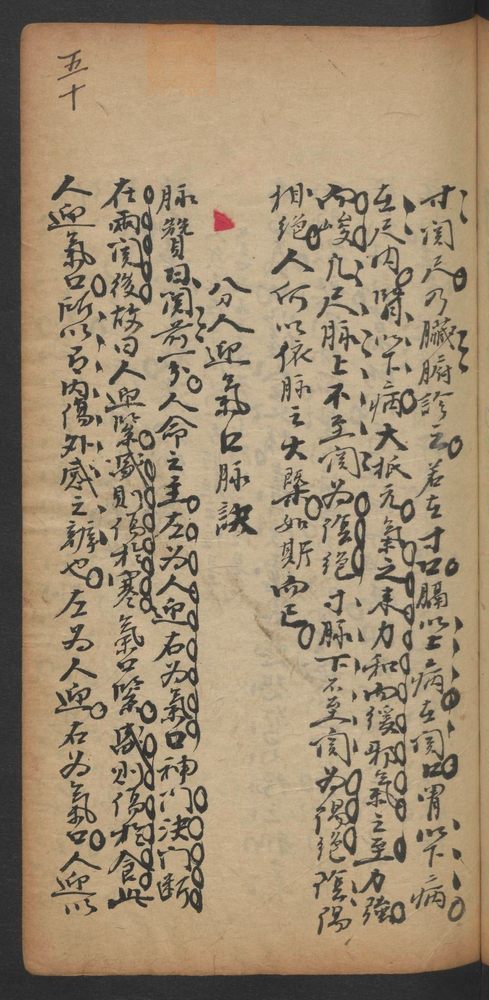 五十
寸関尺乃臓腑診云若在寸口膈以上病在関口胃以下病
在尺内腎以下病大抵元氣之来力和而緩邪氣之至力強
而峻凡尺脉上不至関為陰絶寸脉下不至関為陽絶陰陽
相絶人何以依脉之大槩如斯而已
八分人迎氣口脉訣
脉賛曰関前一分人命之主左為人迎右為氣口神門決断
在両関後故曰人迎緊盛則傷於寒氣口緊盛則傷於食此
人迎氣口所以為内傷外感之辨也左為人迎右為氣口人迎以